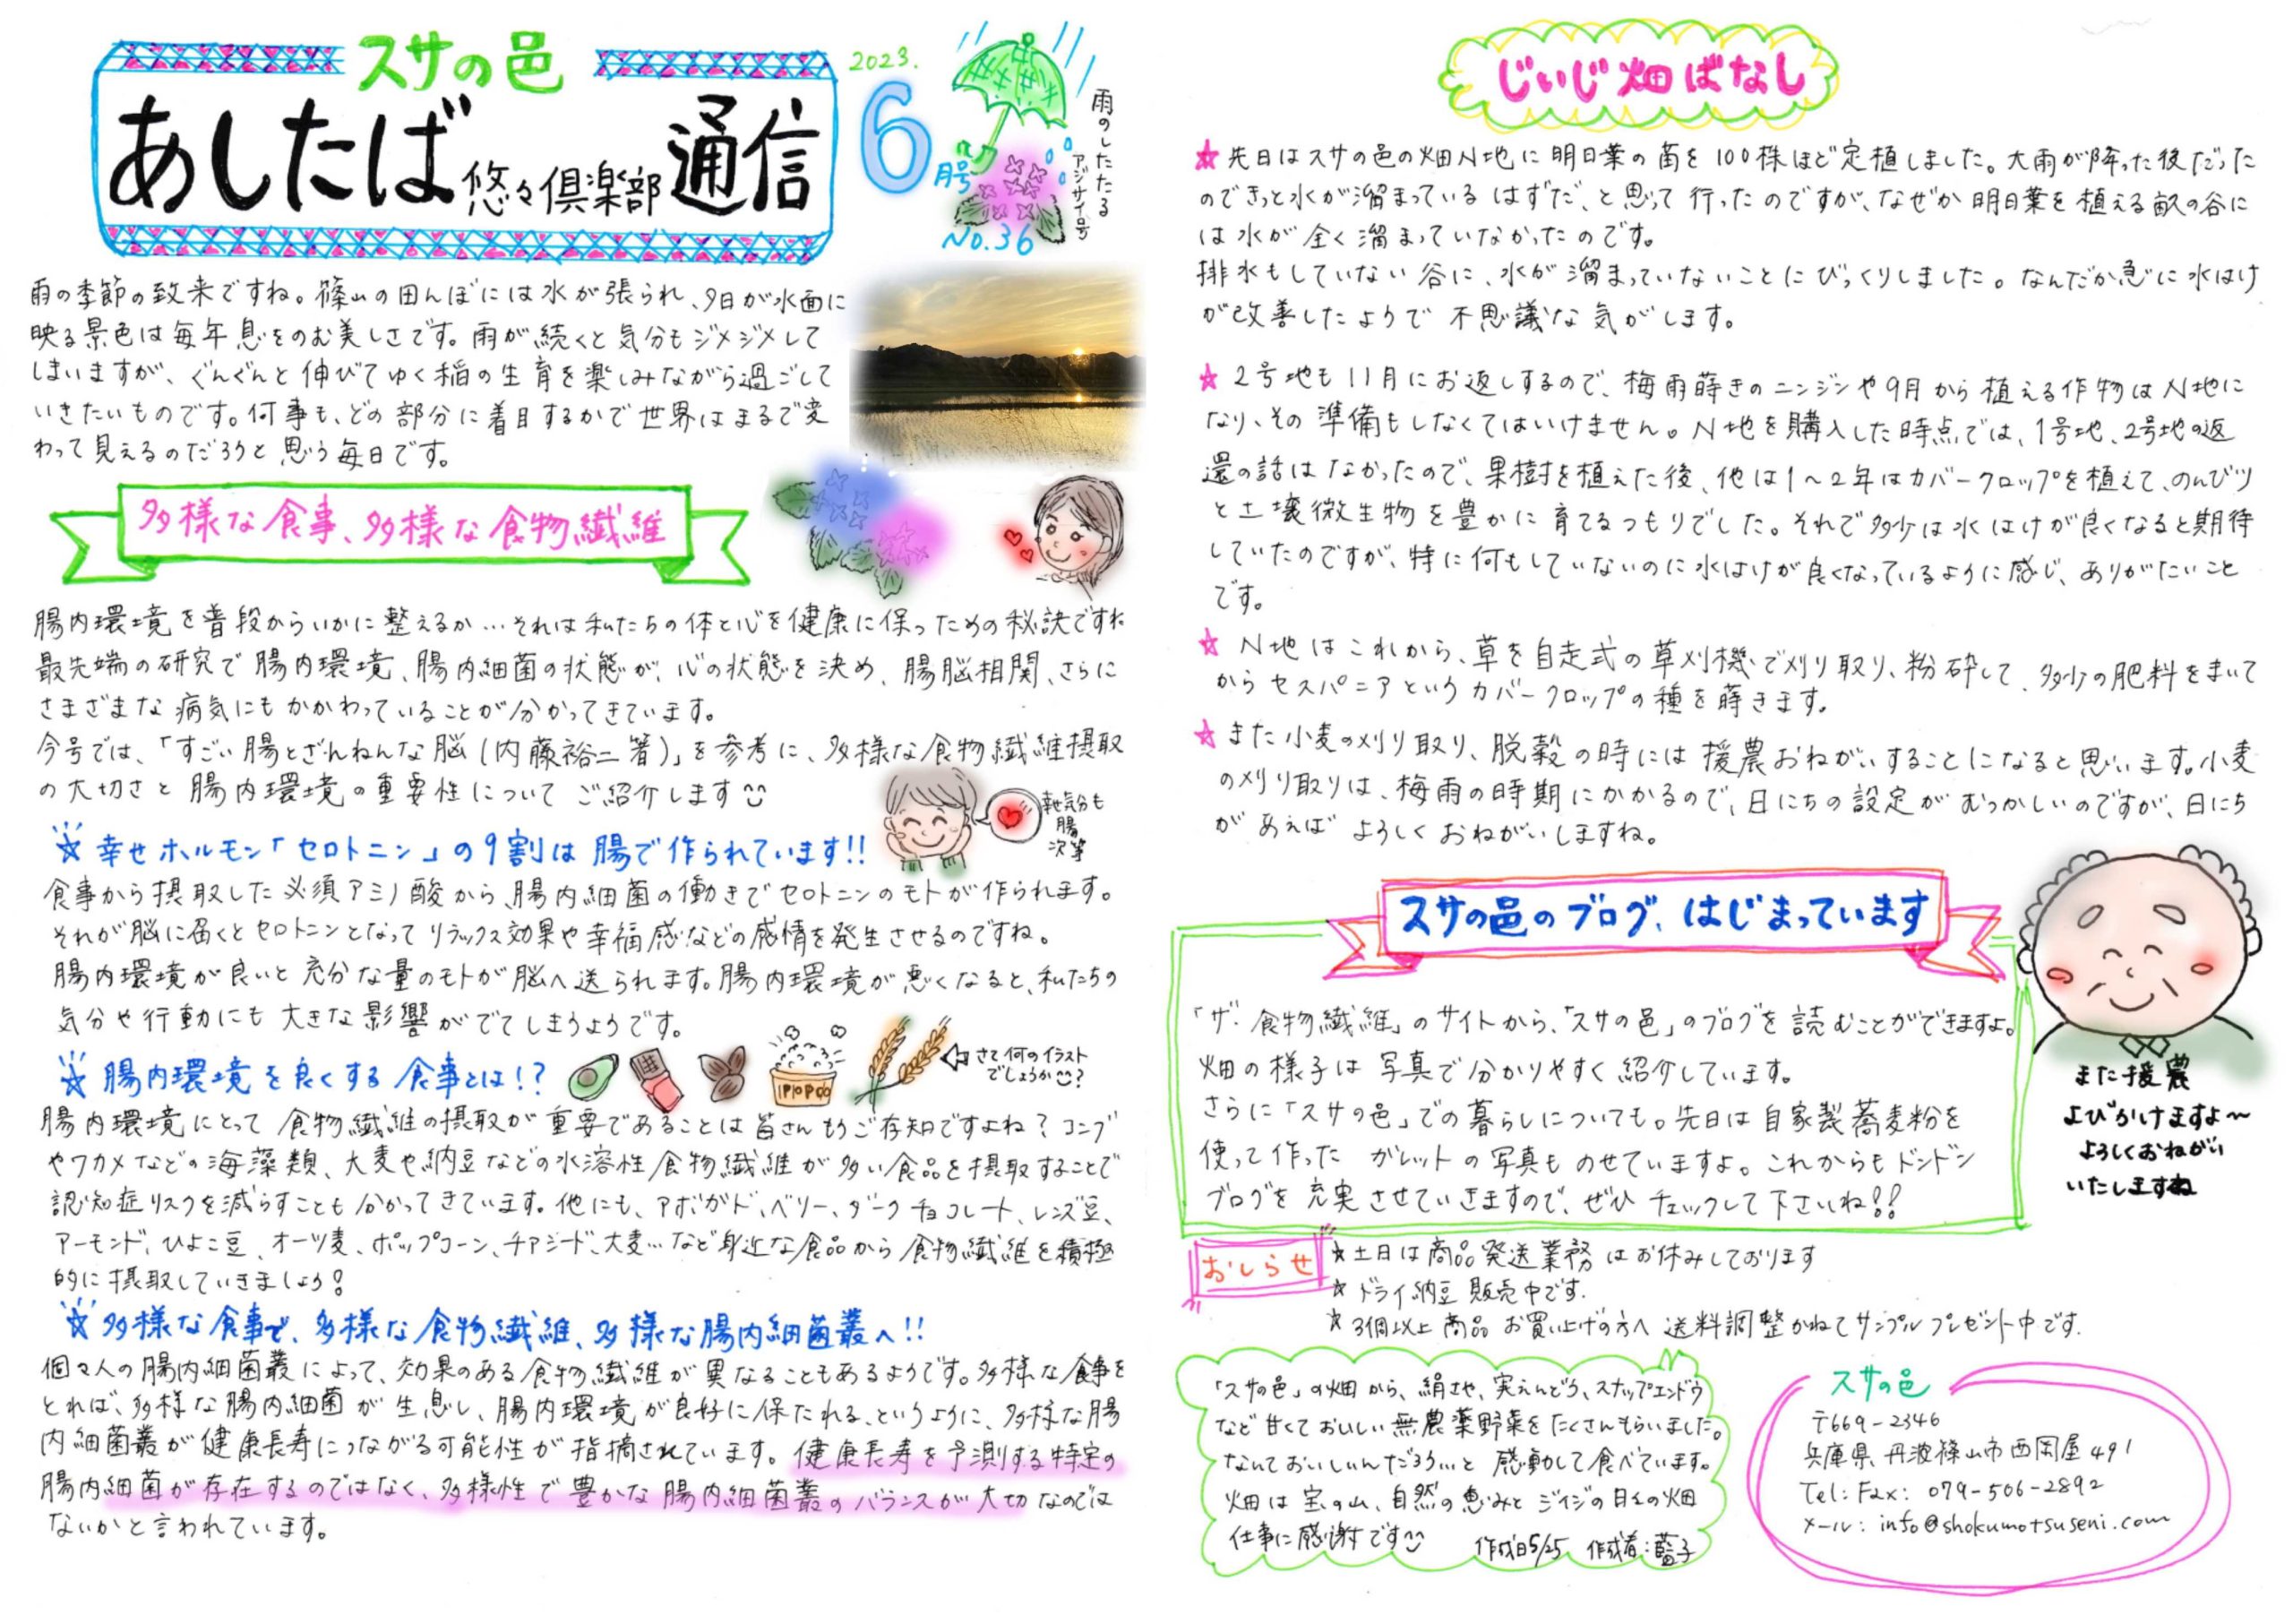 スサの邑
あしたば悠々倶楽部通信
2023.
6月号
雨のしたたる
アジサイ号
No.36
雨の季節の致来ですね。篠山の田んぼには水が張られ、夕日が水面に
映る景色は毎年息をのむ美しさです。雨が続くと気分もジメジメして
しまいますが、ぐんぐんと伸びてゆく稲の生育を楽しみながら過ごして
いきたいものです。何事も、どの部分に着目するかで世界はまるで変
わって見えるのだろうと思う毎日です。
多様な食事、多様な食物繊維
腸内環境を普段からいかに整えるか…それは私たちの体と心を健康に保つための秘訣ですね
最先端の研究で腸内環境、腸内細菌の状態が、心の状態を決め、腸脳相関、さらに
さまざまな病気にもかかわっていることが分かってきています。
今号では、「すごい腸とざんねんな脳(内藤裕二著)」を参考に、多様な食物繊維摂取
の大切さと腸内環境の重要性についてご紹介します
幸せ気分も
腸
次第
☆幸せホルモン「セロトニン」の9割は腸で作られています!!
食事から摂取した必須アミノ酸から、腸内細菌の働きでセロトニンのモトが作られます。
それが脳に届くとセロトニンとなってリラックス効果や幸福感などの感情を発生させるのですね。
腸内環境が良いと充分な量のモトが脳へ送られます。腸内環境が悪くなると、私たちの
気分や行動にも大きな影響がでてしまうようです。
☆腸内環境を良くする食事とは!?
POPCO
さて何のイラスト
でしょうか?
腸内環境にとって食物繊維の摂取が重要であることは皆さんもうご存知ですよね?コンブ
やワカメなどの海藻類、大麦や納豆などの水溶性食物繊維が多い食品を摂取することで
認知症リスクを減らすことも分かってきています。他にも、アボガド、ベリー、ダークチョコレート、レンズ豆、
アーモンド、ひよこ豆、オーツ麦、ポップコーン、チアシード、大麦…など身近な食品から食物繊維を積極
的に摂取していきましょう!
☆多様な食事で、多様な食物繊維、多様な腸内細菌叢へ!!
個々人の腸内細菌叢によって、効果のある食物繊維が異なることもあるようです。多様な食事を
とれば、多様な腸内細菌が生息し、腸内環境が良好に保たれる、というように、多様な腸
内細菌叢が健康長寿につながる可能性が指摘されています。健康長寿を予測する特定の
腸内細菌が存在するのではなく、多様性で豊かな腸内細菌叢のバランスが大切なのでは
ないかと言われています。
じいじ畑ばなし
★先日はスサの邑の畑N地に明日葉の苗を100株ほど定植しました。大雨が降った後だった
のできっと水が溜まっているはずだ、と思って行ったのですが、なぜか明日葉を植える畝の谷に
は水が全く溜まっていなかったのです。
排水もしていない谷に、水が溜まっていないことにびっくりしました。なんだか急に水はけ
が改善したようで不思議な気がします。
★2号地も11月にお返しするので、梅雨蒔きのニンジンや9月から植える作物はN地に
なり、その準備もしなくてはいけません。N地を購入した時点では、1号地、2号地の返
還の話はなかったので、果樹を植えた後、他は1~2年はカバークロップを植えて、のんびり
と土壌微生物を豊かに育てるつもりでした。それで多少は水はけが良くなると期待
していたのですが、特に何もしていないのに水はけが良くなっているように感じ、ありがたいこと
です。
★N地はこれから、草を自走式の草刈機で刈り取り、粉砕して、多少の肥料をまいて
からセスバニアというカバークロップの種を蒔きます。
★また小麦の刈り取り、脱穀の時には援農おねがいすることになると思います。小麦
の刈り取りは、梅雨の時期にかかるので、日にちの設定がむつかしいのですが、日にち
があえばよろしくおねがいしますね。
スサの邑のブログ、はじまっています
「ザ・食物繊維」のサイトから、「スサの邑」のブログを読むことができますよ。
畑の様子は写真で分かりやすく紹介しています。
さらに「スサの邑」での暮らしについても。先日は自家製蕎麦粉を
使って作ったガレットの写真ものせていますよ。これからもドンドン
ブログを充実させていきますので、ぜひチェックして下さいね!!
また援農
よびかけますよ〜
よろしくおねがい
いたしますね
おしらせ
☆土日は商品発送業務はお休みしております
☆ドライ納豆販売中です.
☆3個以上商品お買い上げの方へ送料調整かねてサンプルプレゼント中です.
「スサの邑」の畑から、絹さや、実えんどう、スナップエンドウ
など甘くておいしい無農薬野菜をたくさんもらいました。
なんておいしいんだろう…と感動して食べています。
畑は宝の山、自然の恵みとジイジの日々の畑
仕事に感謝です
作成日5/25 作成者:藍子
スサの邑
〒669-2346
兵庫県丹波篠山市西岡屋491
Tel:Fax: 079-506-2892
メール: info@shokumotsuseni.com